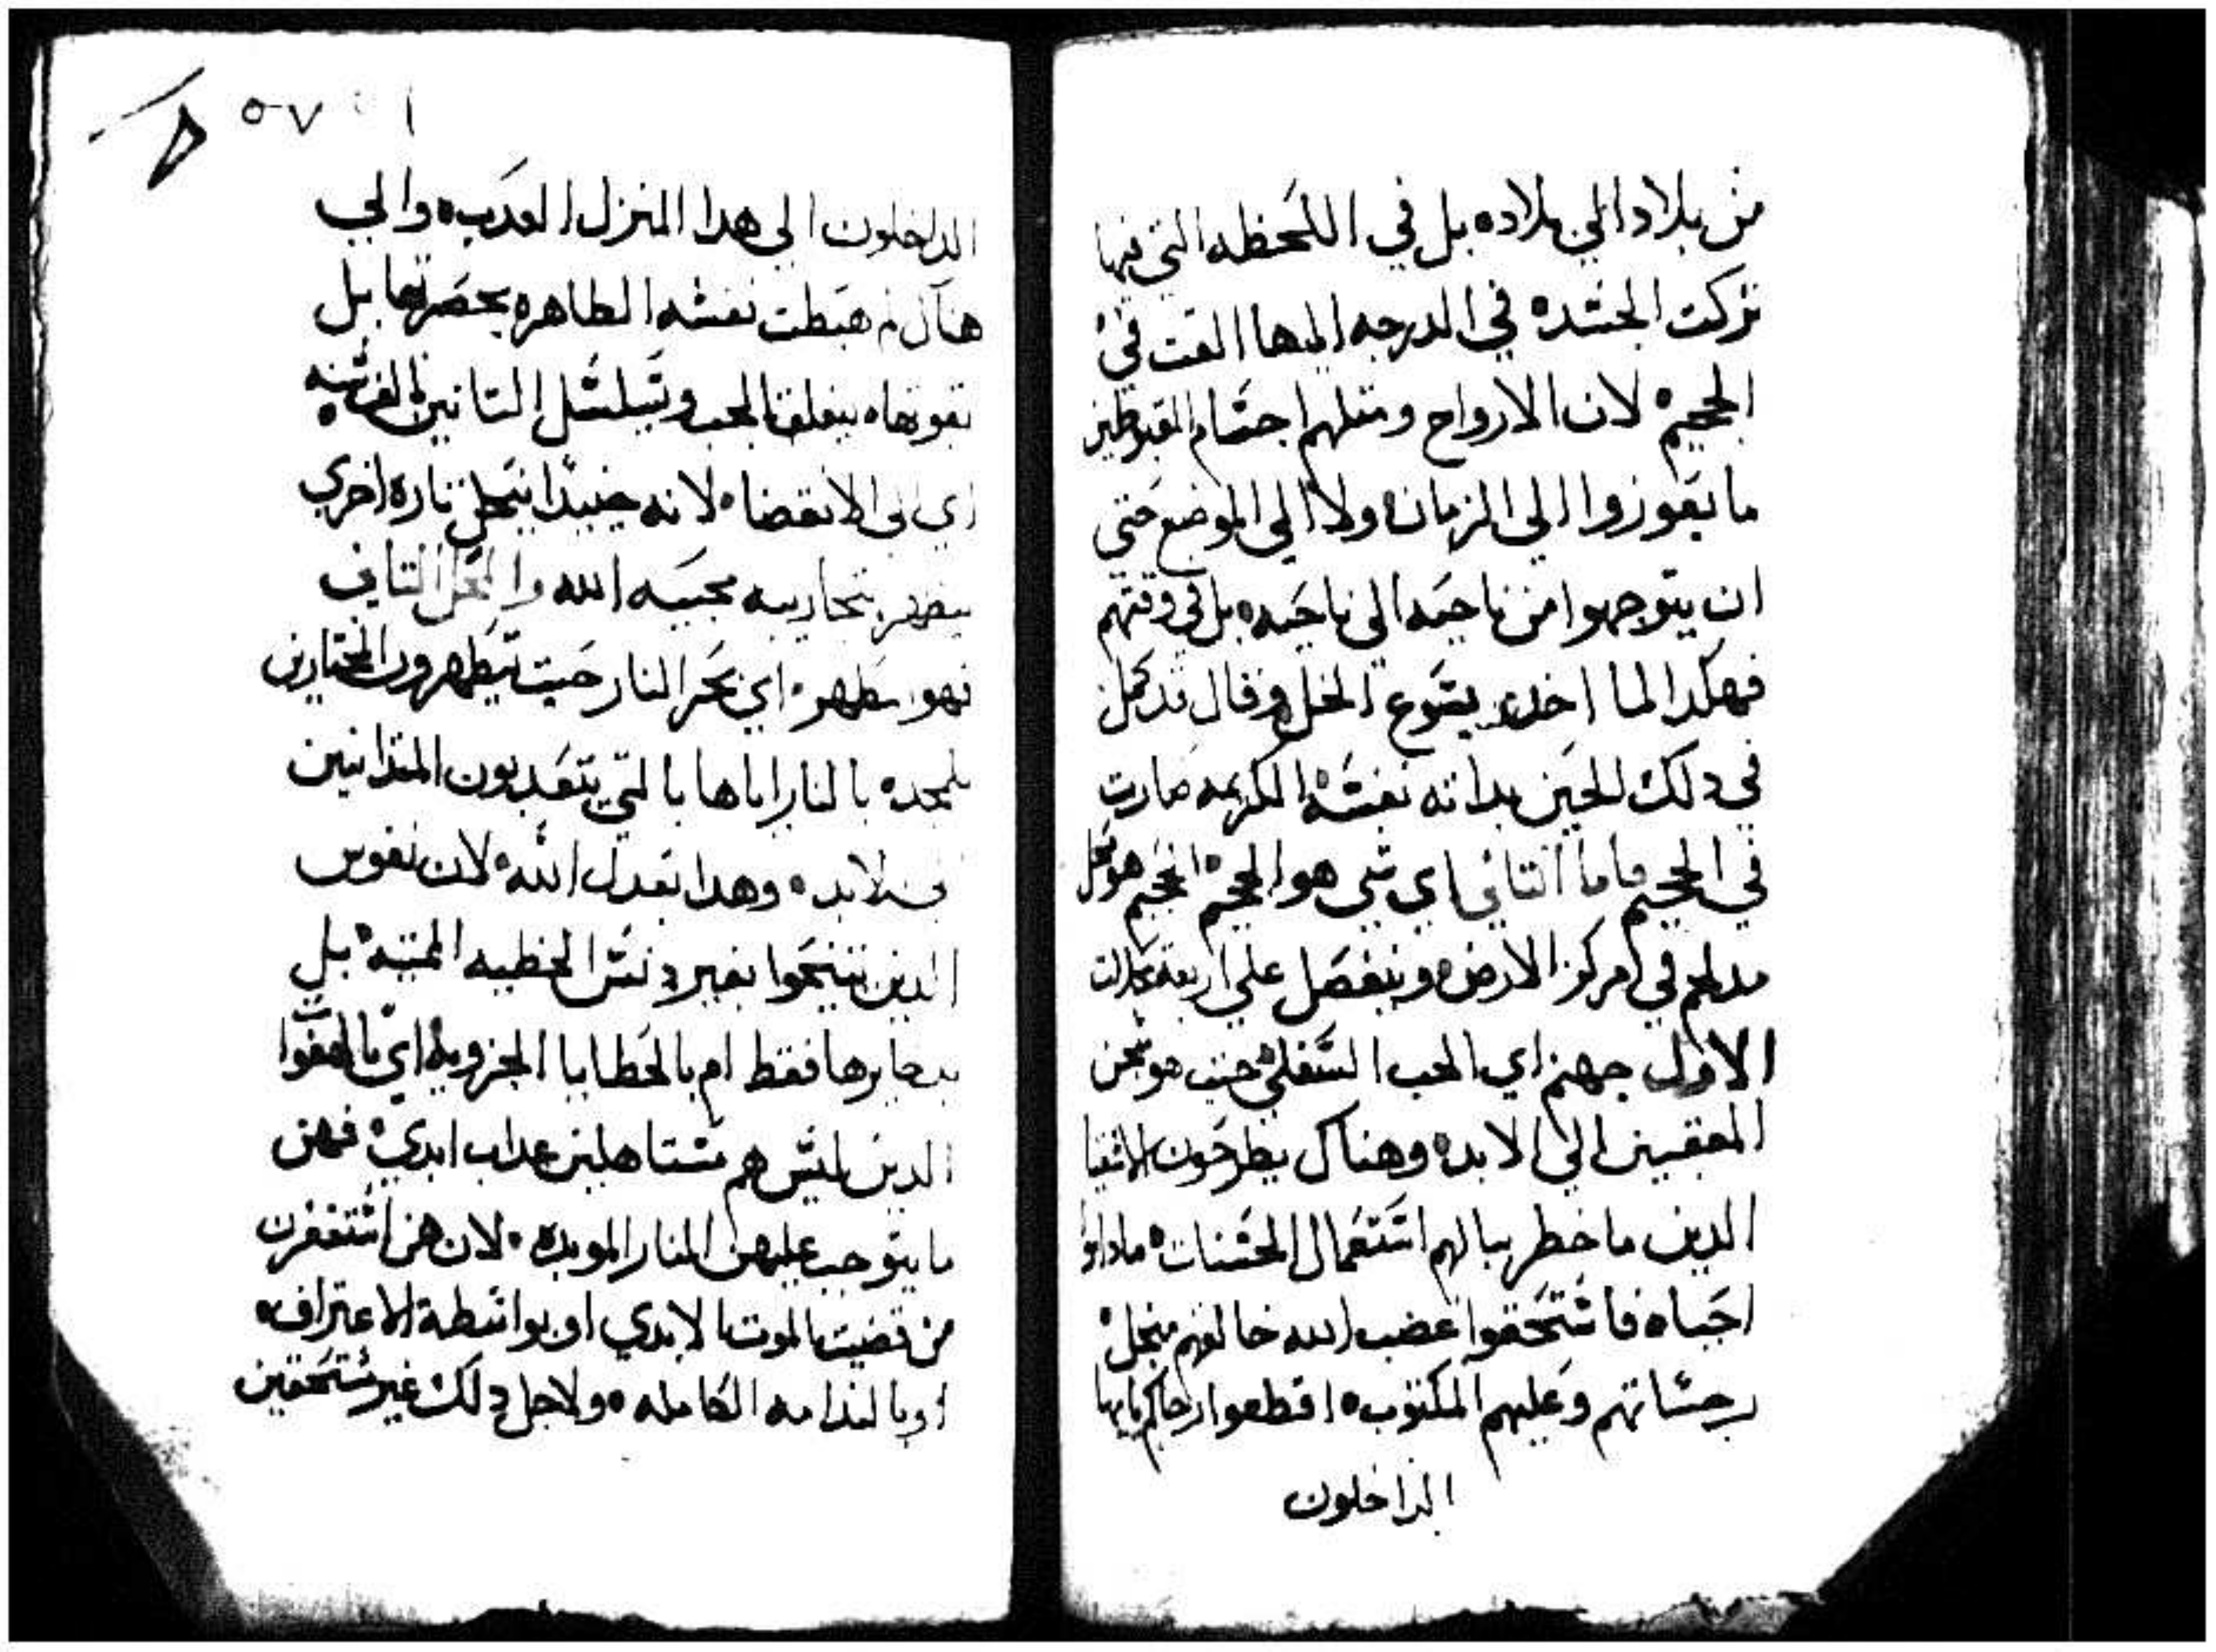 من بلاد الي بلاده بل في اللحظه التي فيها
تركت الجسده في الدرجه اليها القت في
الجحيم لان الارواح ومثلهم اجسام
ما يعوزوا الي الزمان ولا الي الموضع حتي
ان يتوجهوا من ناحيه الي ناحيه بل في وقتهم
فهكدا لما اخد يسوع الخل وقال قد كمل
في دلك الحين بداته نفسه الكريمه صارت
في الجحيم فاما التاني اي شي هو الجحيم الجحيم هو محل
مدلهم في مركز الارض وينفصل علي اربعة محلات
الاول جهنم اي الجب السفلي حيت هو سجن
المعقبين الي الابد وهناك يطرحون الاشقيا
الدين ما خطر ببالهم استعمال الحسنات ماداموا
احياه فاستحقوا غضب الله خالقهم
وعليهم المكتوب اقطعوا
الداخلون
٥٧
الداخلون الي هدا المنزل العدب والي
هناك لم هبطت نفسه الطاهره بحضرتها بل
بقوتها ينغلق الجب وتسلسل
اي الي الانقضا لانه حينيدا ينحل تارة اخري
الله والمحل التاني
فهو مطهر اي بحر النار حيت يتطهرون المختارين
بالنار اياها بالتي يتعدبون
الابد وهدا بعدل الله لان نفوس
الدين بغير دنس الخطيه الميته بل
فقط ام بالخطايا الجزويه اي بالهفوات
الدين ليس هم مستاهلين عداب ابدي فهن
ما يتوجب عليهن النار الموبده لان هن استغفرن
من قضيت الموت الابدي او بواسطة الاعتراف
او بالندامه الكامله ولاجل دلك غير مستحقين